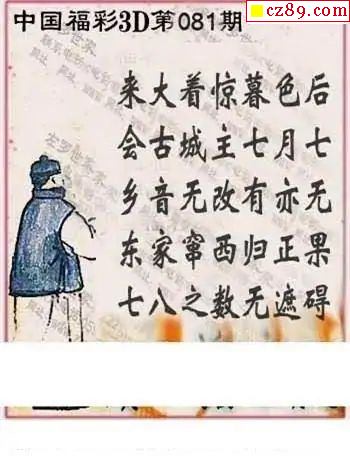 中国福彩3D第081期
cz89.com
来大着惊暮色后
会古城主七月七
乡音无改有亦无
东家窜西归正果
七八之数无遮碍